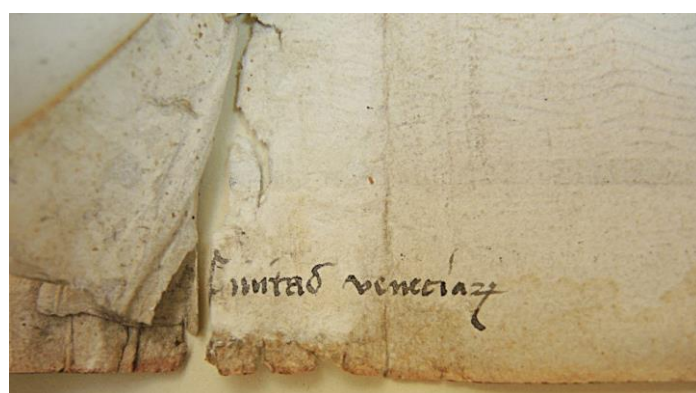 Ciuitas veneciaꝝ